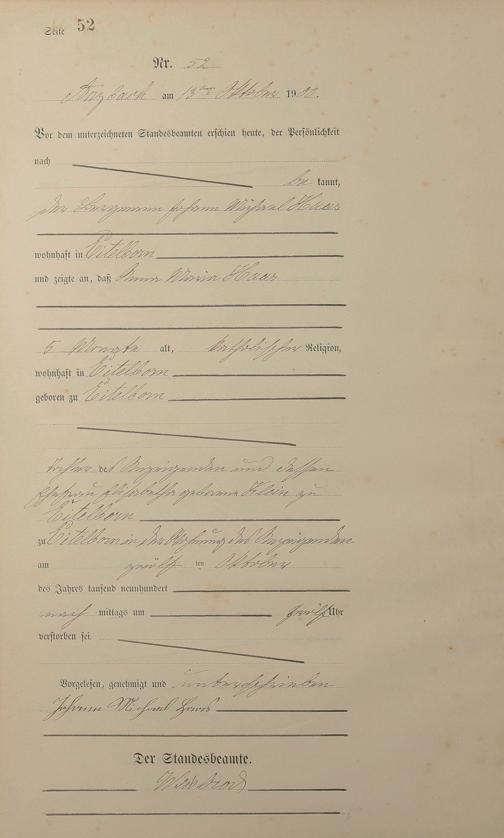 Seite 52
Nr. 52
Arzbach am 13ten Oktober 19
Vor dem unterzeichneten Standesbeamten erschien heute, der Persönlichkeit
nach
be kannt,
der Bergmann Johann Michael Haas
wohnhaft in Eitelborn
und zeigte an, daß Anna Maria Haas
5 Monate alt, katholischer Religion,
wohnhaft in Eitelborn
geboren zu Eitelborn
Tochter des Anzeigenden und dessen
Ehefrau Elisabetha geborene Klein zu
Eitelborn
zu Eitelborn in der Wohnung des Anzeigenden
am zwölf ten Oktober
des Jahres tausend neunhundert
nach mittags um zwölf Uhr
verstorben sei.
Vorgelesen, genehmigt und unterschrieben
Johann Michael Haas
Der Standesbeamte.